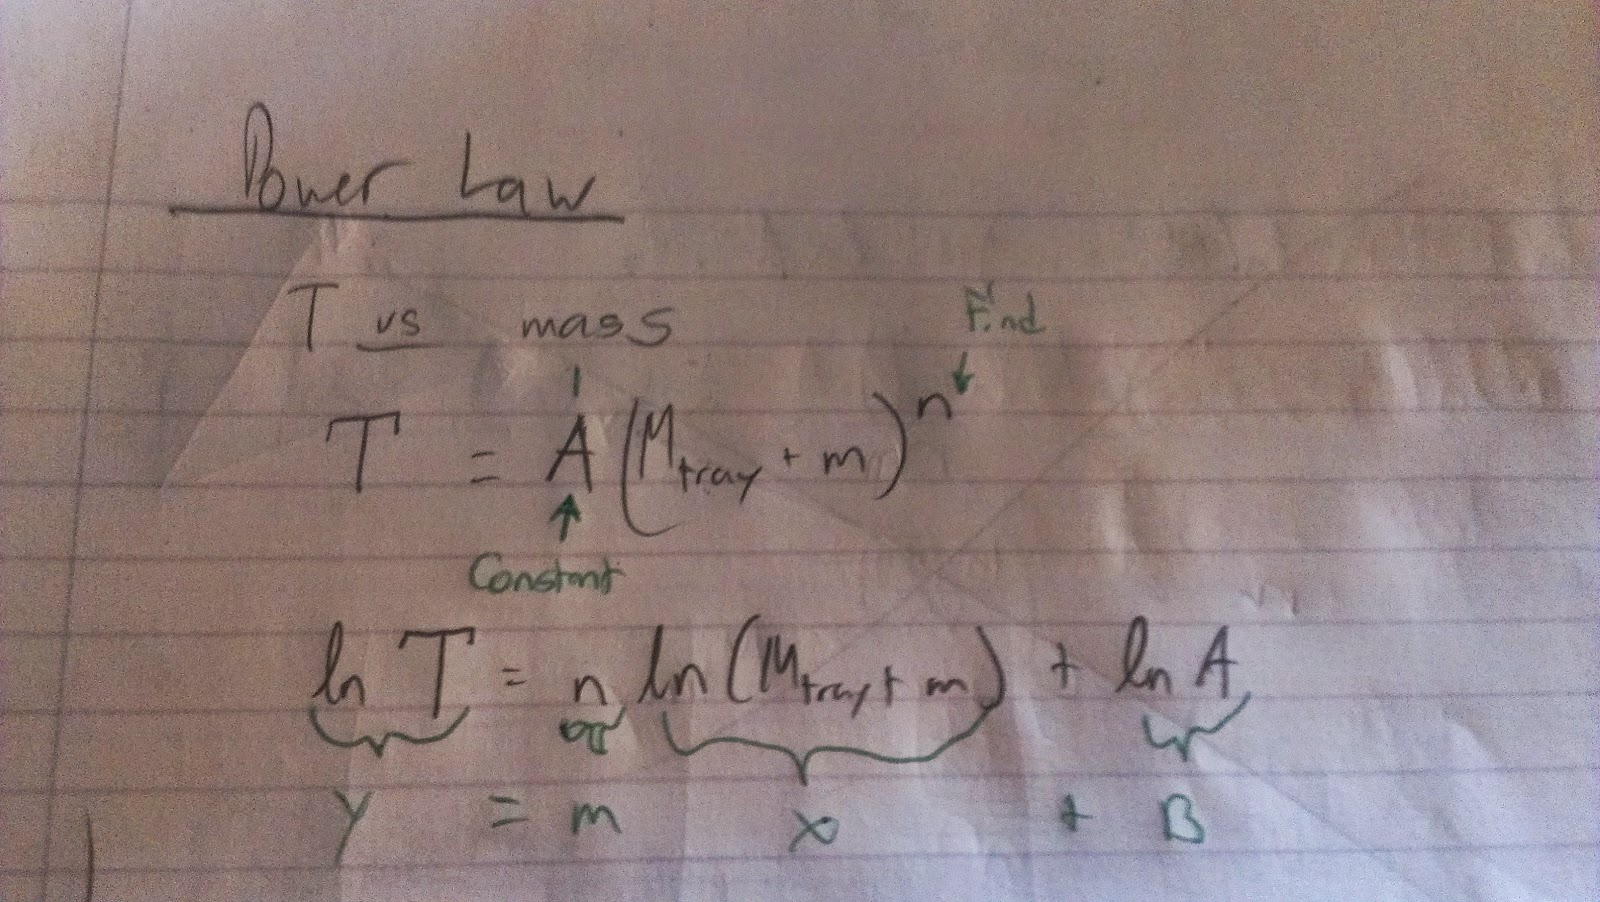 Power Law
T vs mass
Find
T = A (M tray + m)^n
Constant
ln T = n ln (M tray + m) + ln A
y = m x + B